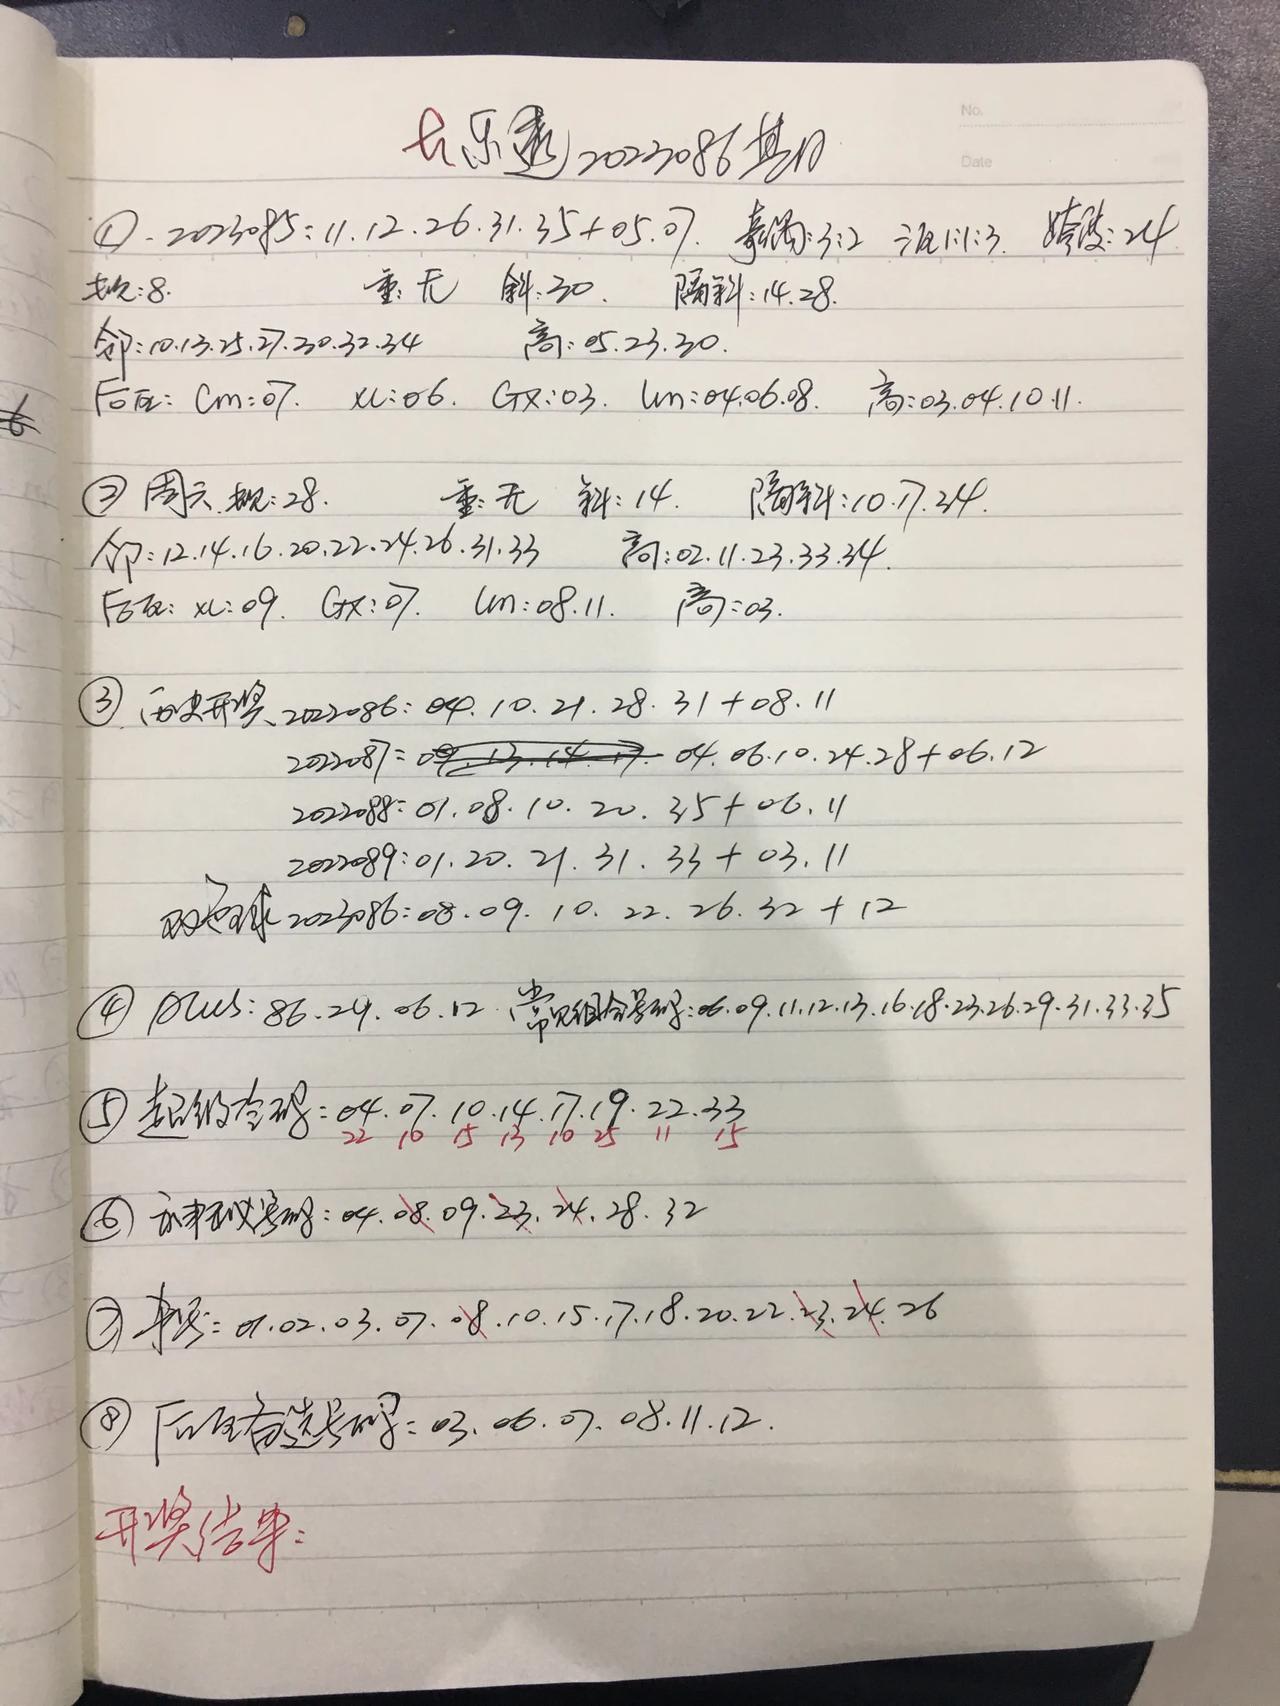 大乐透2023086期
No.
Date
①. 2023085: 11.12.26.31.35+05.07. 奇偶:3:2 三区1:1:3. 跨度:24
规:8. 重:无 斜:30. 隔斜:14.28.
邻:10.13.25.27.30.32.34 高:05.23.30.
后区: Cm:07. XL:06. GX:03. Ln:04.06.08. 高:03.04.10.11.
② 周六规:28. 重:无 斜:14. 隔斜:10.17.34.
邻:12.14.16.20.22.24.26.31.33 高:02.11.23.33.34.
后区: XL:09. GX:07. Ln:08.11. 高:03.
③ 历史开奖 2022086: 04.10.21.28.31+08.11
2022087: 04.06.10.24.28+06.12
2022088: 01.08.10.20.35+06.11
2022089: 01.20.21.31.33+03.11
双色球2023086: 08.09.10.22.26.32+12
④ plus: 86.24.06.12 常见组合号码:06.09.11.12.13.16.18.23.26.29.31.33.35
⑤ 超级冷码: 04.07.10.14.17.19.22.33
22 10 15 13 10 25 11 15
⑥ 神秘号码: 04.08.09.23.24.28.32
⑦ 01.02.03.07.08.10.15.17.18.20.22.23.24.26
⑧ 后区备选号码: 03.06.07.08.11.12.
开奖结果: